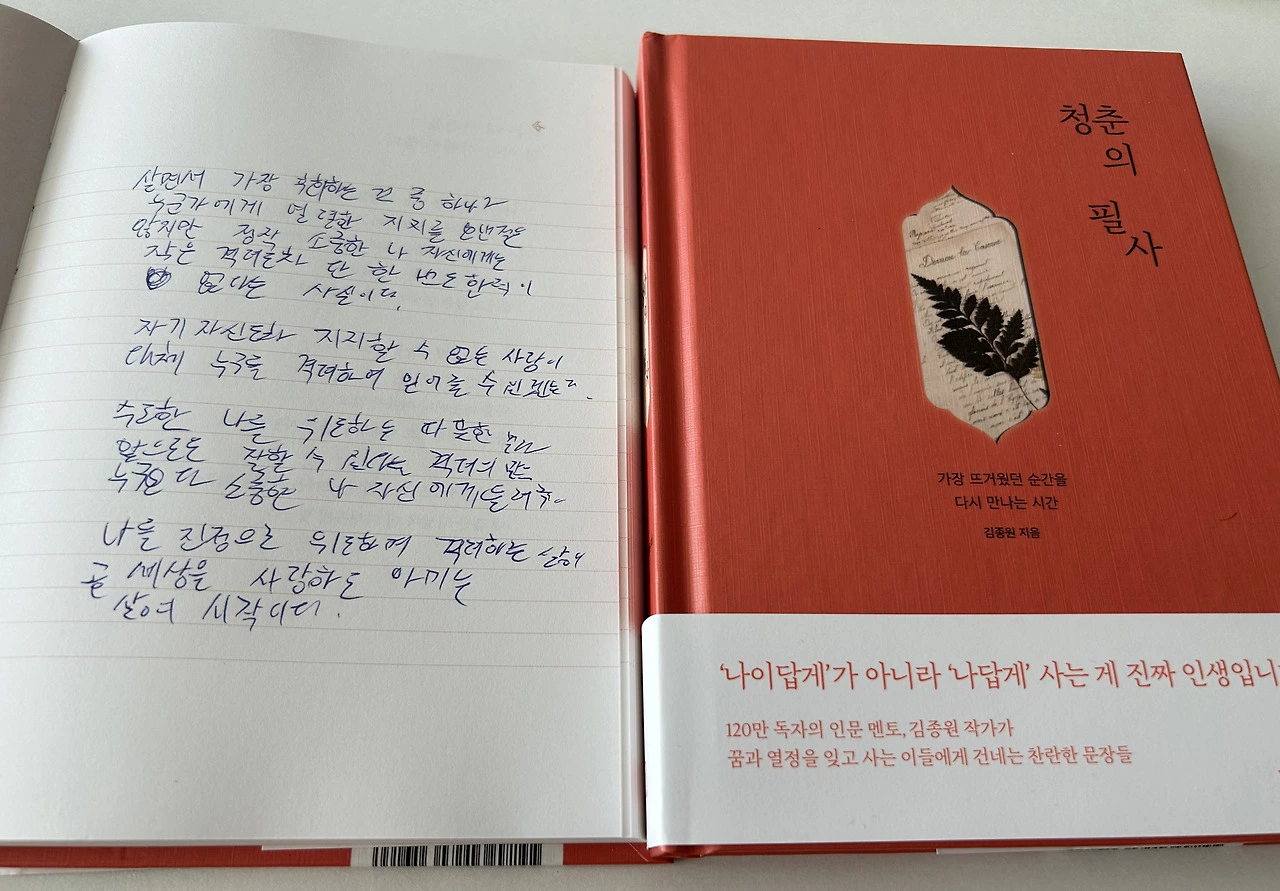 살면서 가장 후회하는 건 중 하나가
누군가에게 열렬한 지지를 보낸 적은
많지만 정작 소중한 나 자신에게는
작은 격려조차 단 한 번도 한 적이
없다는 사실이다.
자기 자신도 지지할 수 없는 사람이
대체 누구를 격려하며 믿어줄 수 있겠는가.
수고한 나를 위로하는 따뜻한
앞으로도 잘할 수 있다는 격려의 말
누구보다 소중한 나 자신에게 들려주
나를 진정으로 위로하며 격려하는 삶이
곧 세상을 사랑하고 아끼는
삶의 시작이다.
청춘
의
필
사
가장 뜨거웠던 순간을
다시 만나는 시간
김종원 지음
'나이답게'가 아니라 '나답게' 사는 게 진짜 인생입니
120만 독자의 인문 멘토, 김종원 작가가
꿈과 열정을 잊고 사는 이들에게 건네는 찬란한 문장들